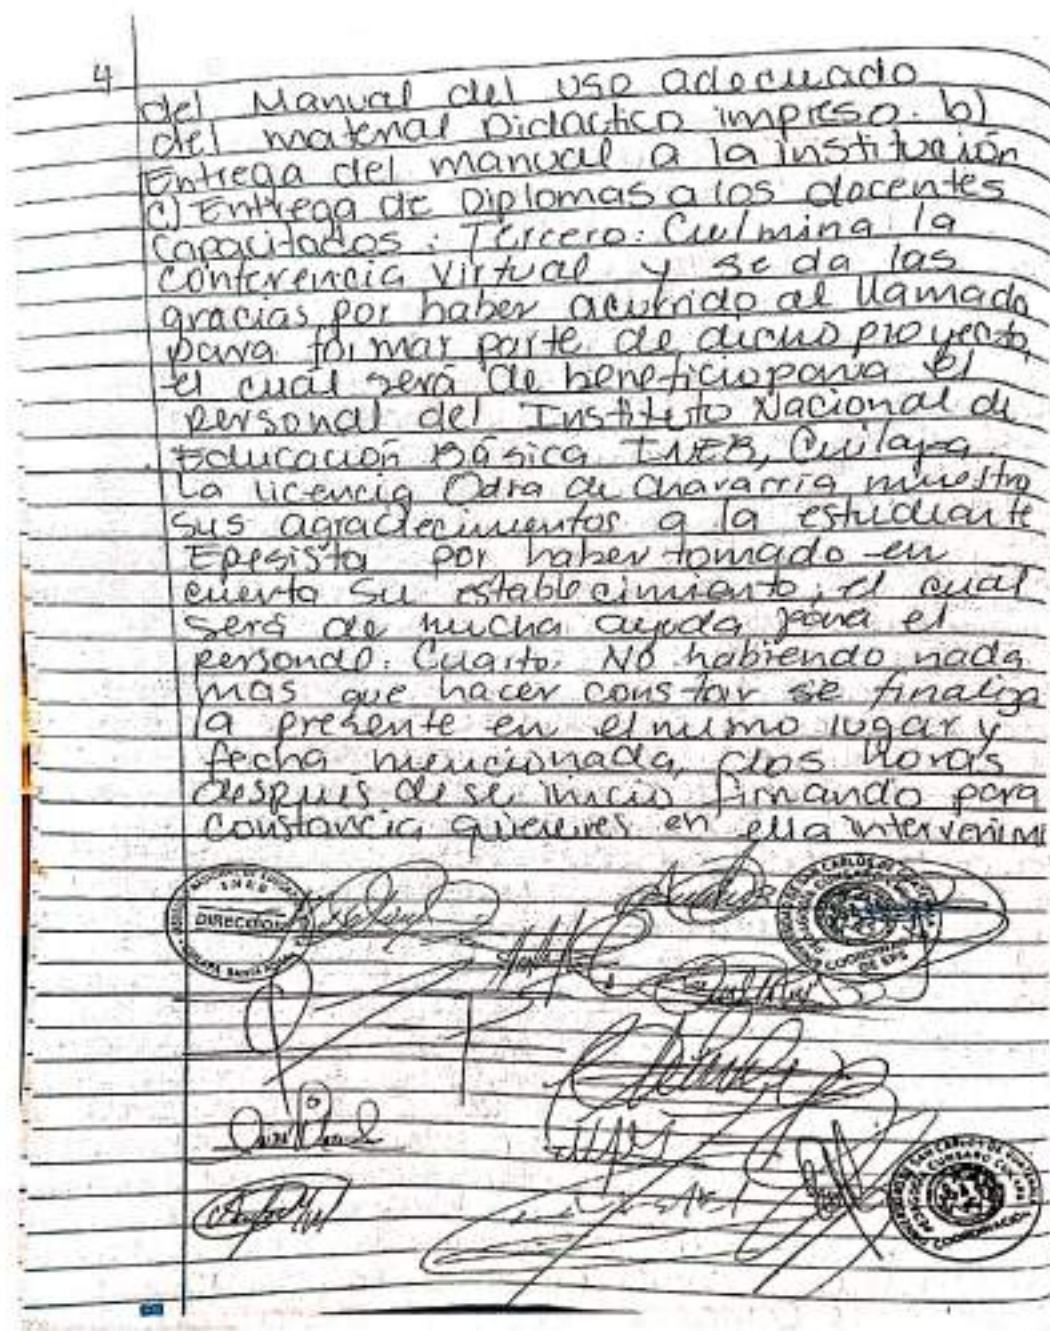 4
del Manual del uso adecuado
del material Didactico impreso. b)
Entrega del manual a la institución
c) Entrega de Diplomas a los docentes
capacitados: Tercero: Culmina la
conferencia virtual y se da las
gracias por haber acurrido al llamado
para formar parte de dicho proyecto,
el cual será de beneficio para el
personal del Instituto Nacional de
Educación Básica INEB, Cuilapa.
La licencia Odra de Chavarría muestra
sus agradecimientos a la estudiante
Epesista por haber tomado en
cuenta su establecimiento, el cual
será de mucha ayuda para el
personal. Cuarto: No habiendo nada
mas que hacer constar se finaliza
la presente en el mismo lugar y
fecha mencionada, dos horas
después de se inicio firmando para
constancia quienes en ella intervenimos
INEB
DIRECCIÓN
SAN CARLOS DE
COORDINA
DE EPS
SAN CARLOS DE